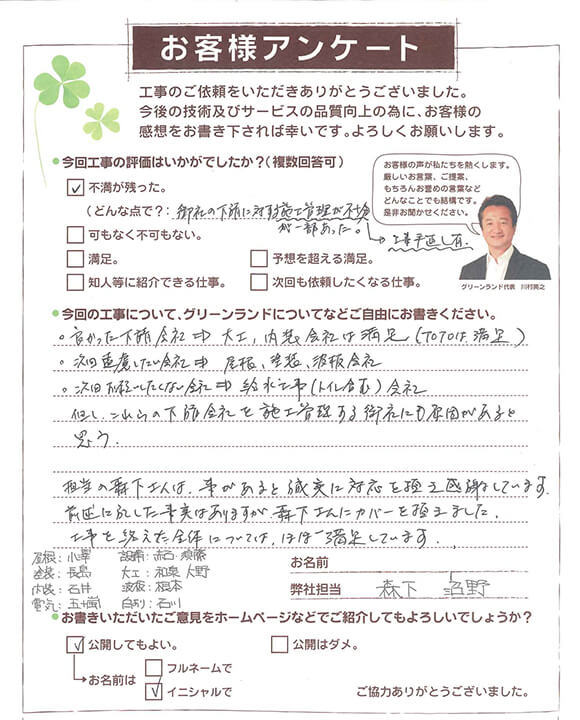 お客様アンケート
工事のご依頼をいただきありがとうございました。
今後の技術及びサービスの品質向上の為に、お客様の
感想をお書き下されば幸いです。よろしくお願いします。
●今回工事の評価はいかがでしたか?(複数回答可)
お客様の声が私たちを熱くします。
厳しいお言葉、ご提案、
もちろんお誉めの言葉など
どんなことでも結構です。
是非お聞かせください。
グリーンランド代表 川村篤之
☑ 不満が残った。
(どんな点で?: 御社の下請に対する施工管理が不適
が一部あった。 → 工事手直し有.
□ 可もなく不可もない。
□ 満足。 □ 予想を超える満足。
□ 知人等に紹介できる仕事。 □ 次回も依頼したくなる仕事。
●今回の工事について、グリーンランドについてなどご自由にお書きください。
○良かった下請会社⇒大工,内装会社は満足(TOTOは満足)
○次回遠慮したい会社⇒屋根,塗装,波板会社
○次回お願いしたくない会社⇒給水工事(トイレ含む)会社
但し、これらの下請会社を施工管理する御社にも原因があると
思う.
担当の森下さんは、事があると誠実に対応を頂き感謝しています.
前述に記した事実はありますが、森下さんにカバーを頂きました.
工事を終えた全体については、ほぼ満足しています.
屋根: 小澤 設備:
塗装: 長島 大工: 和泉 大野
内装: 石井 波板: 根本
電気: 五十嵐 白あり: 石川
お名前
弊社担当 森下 沼野
●お書きいただいたご意見をホームページなどでご紹介してもよろしいでしょうか?
☑ 公開してもよい。 □ 公開はダメ。
→お名前は □ フルネームで
☑ イニシャルで
ご協力ありがとうございました。